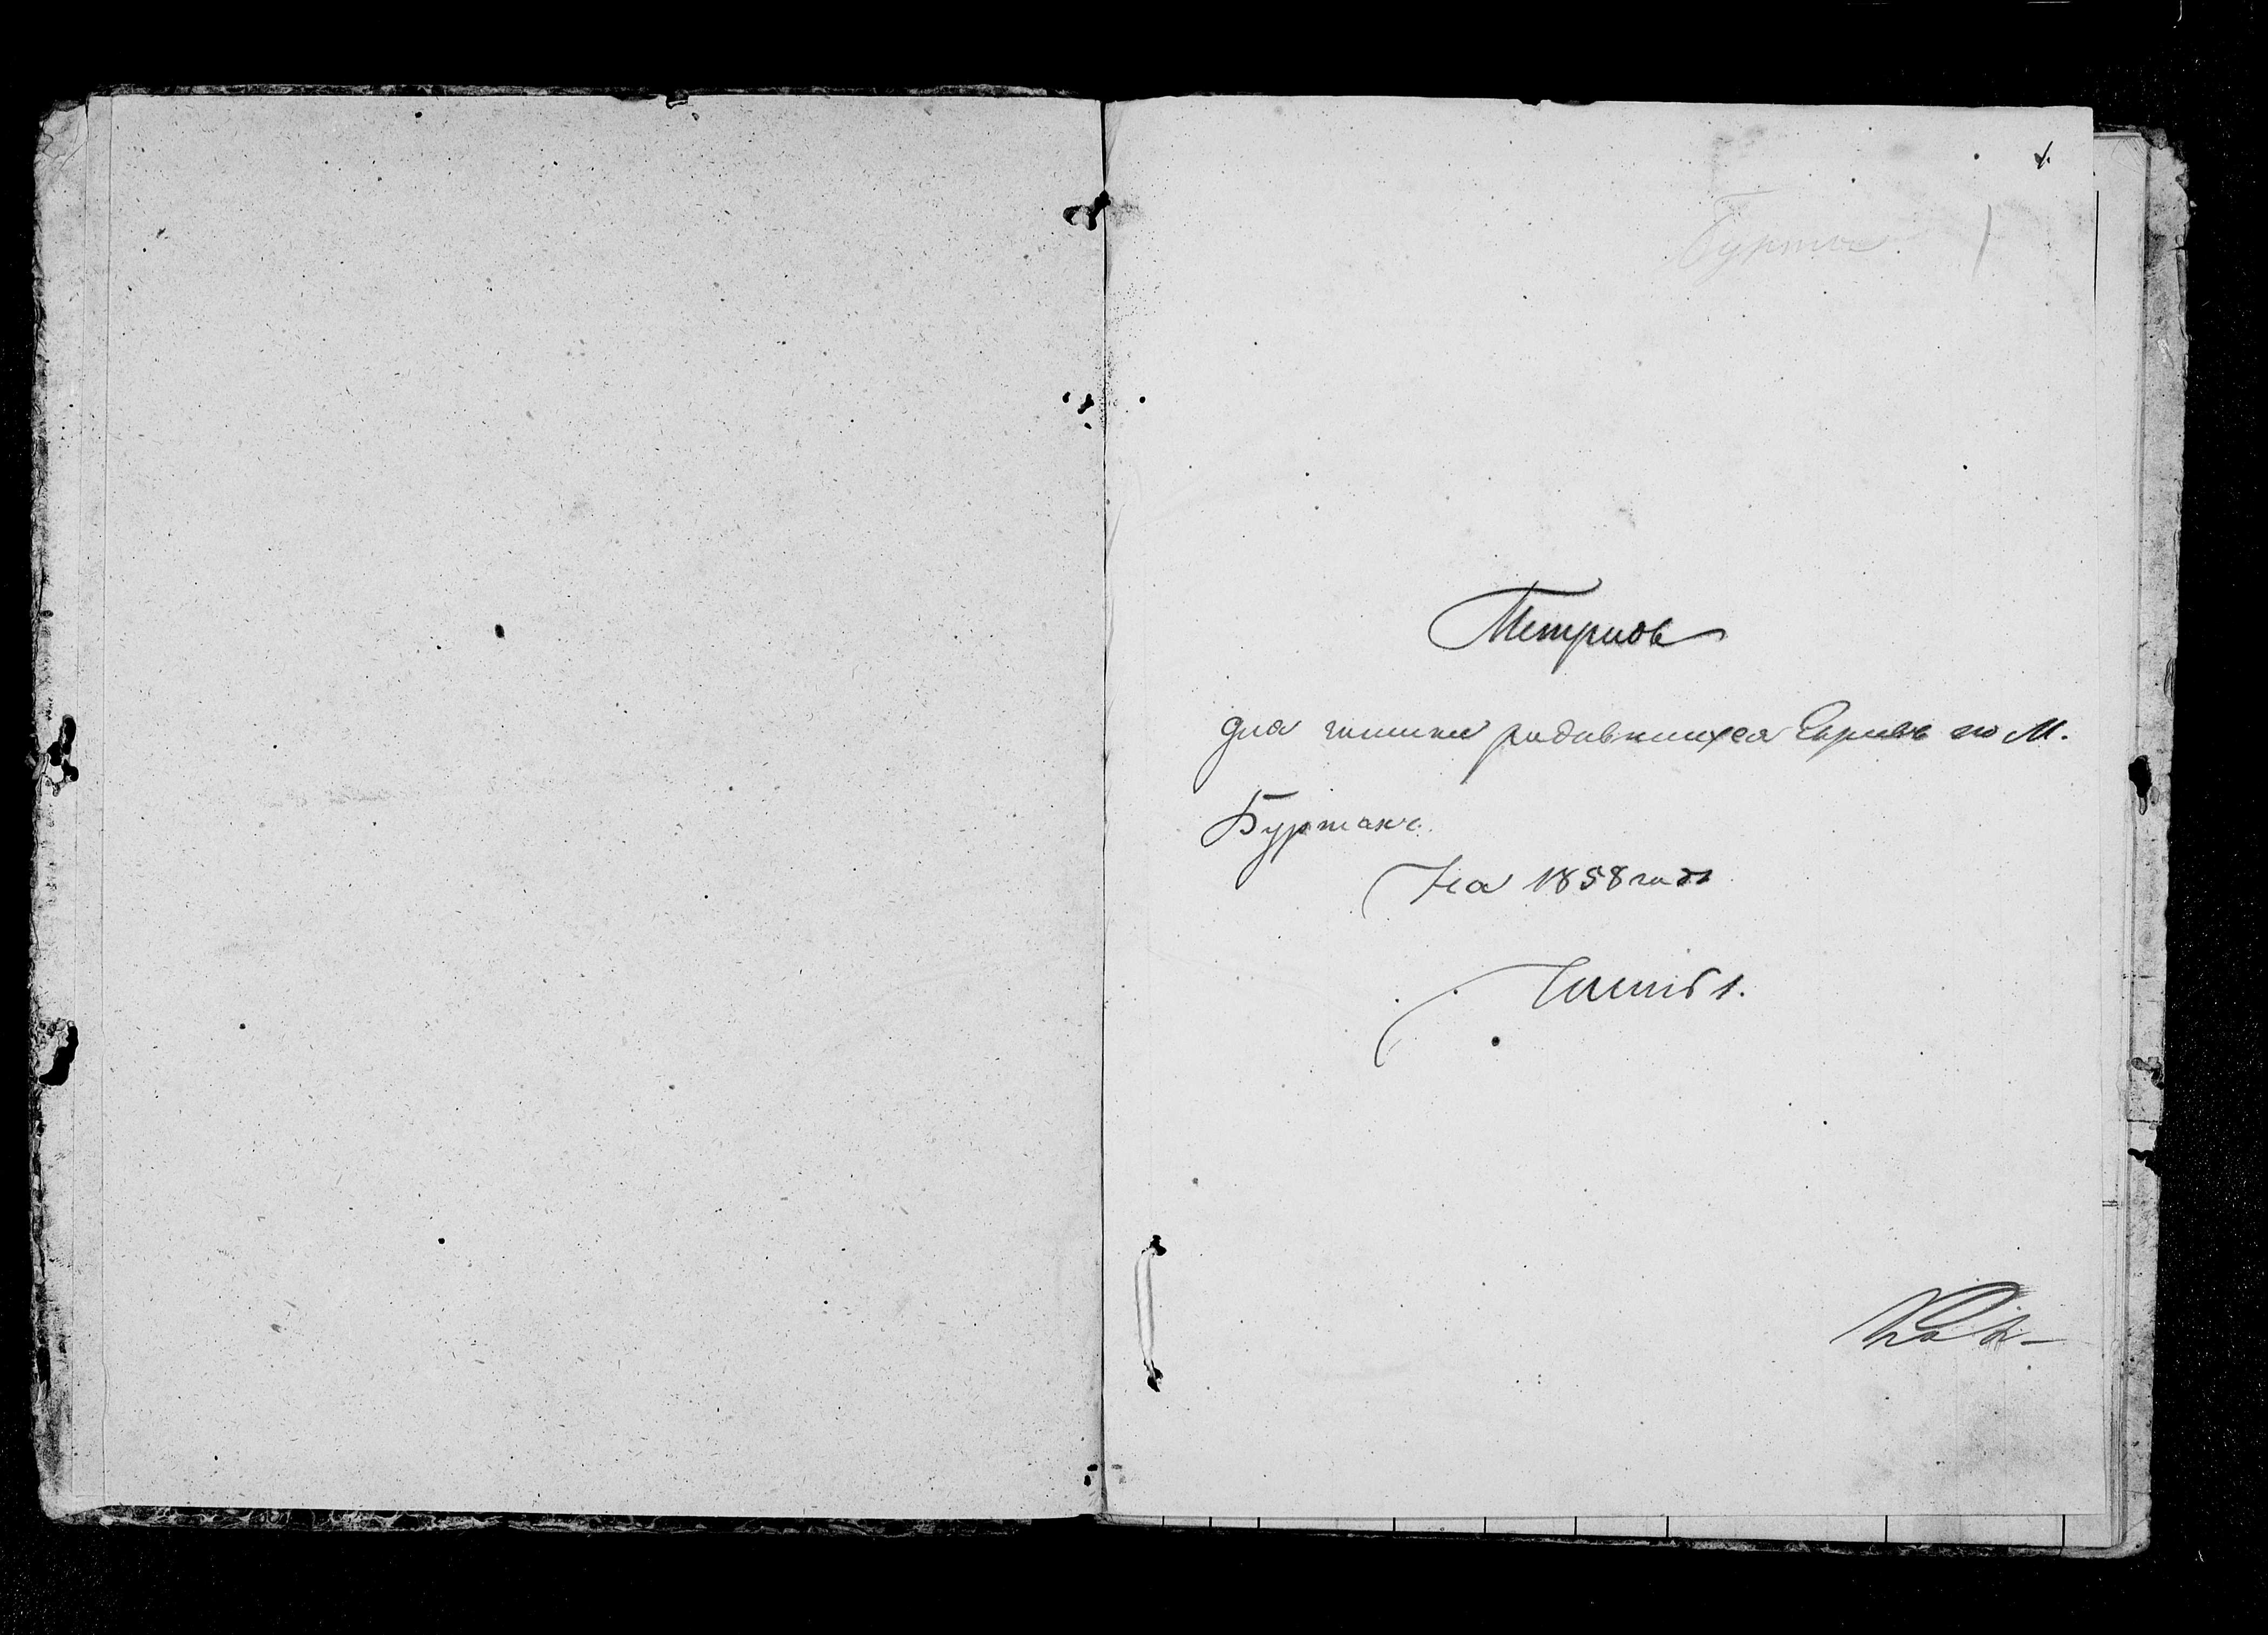 1.
Бурты
1
Метрика
для записки родившихся Евреевъ по М.
Буртахъ.
На 1858 годъ
Часть 1.